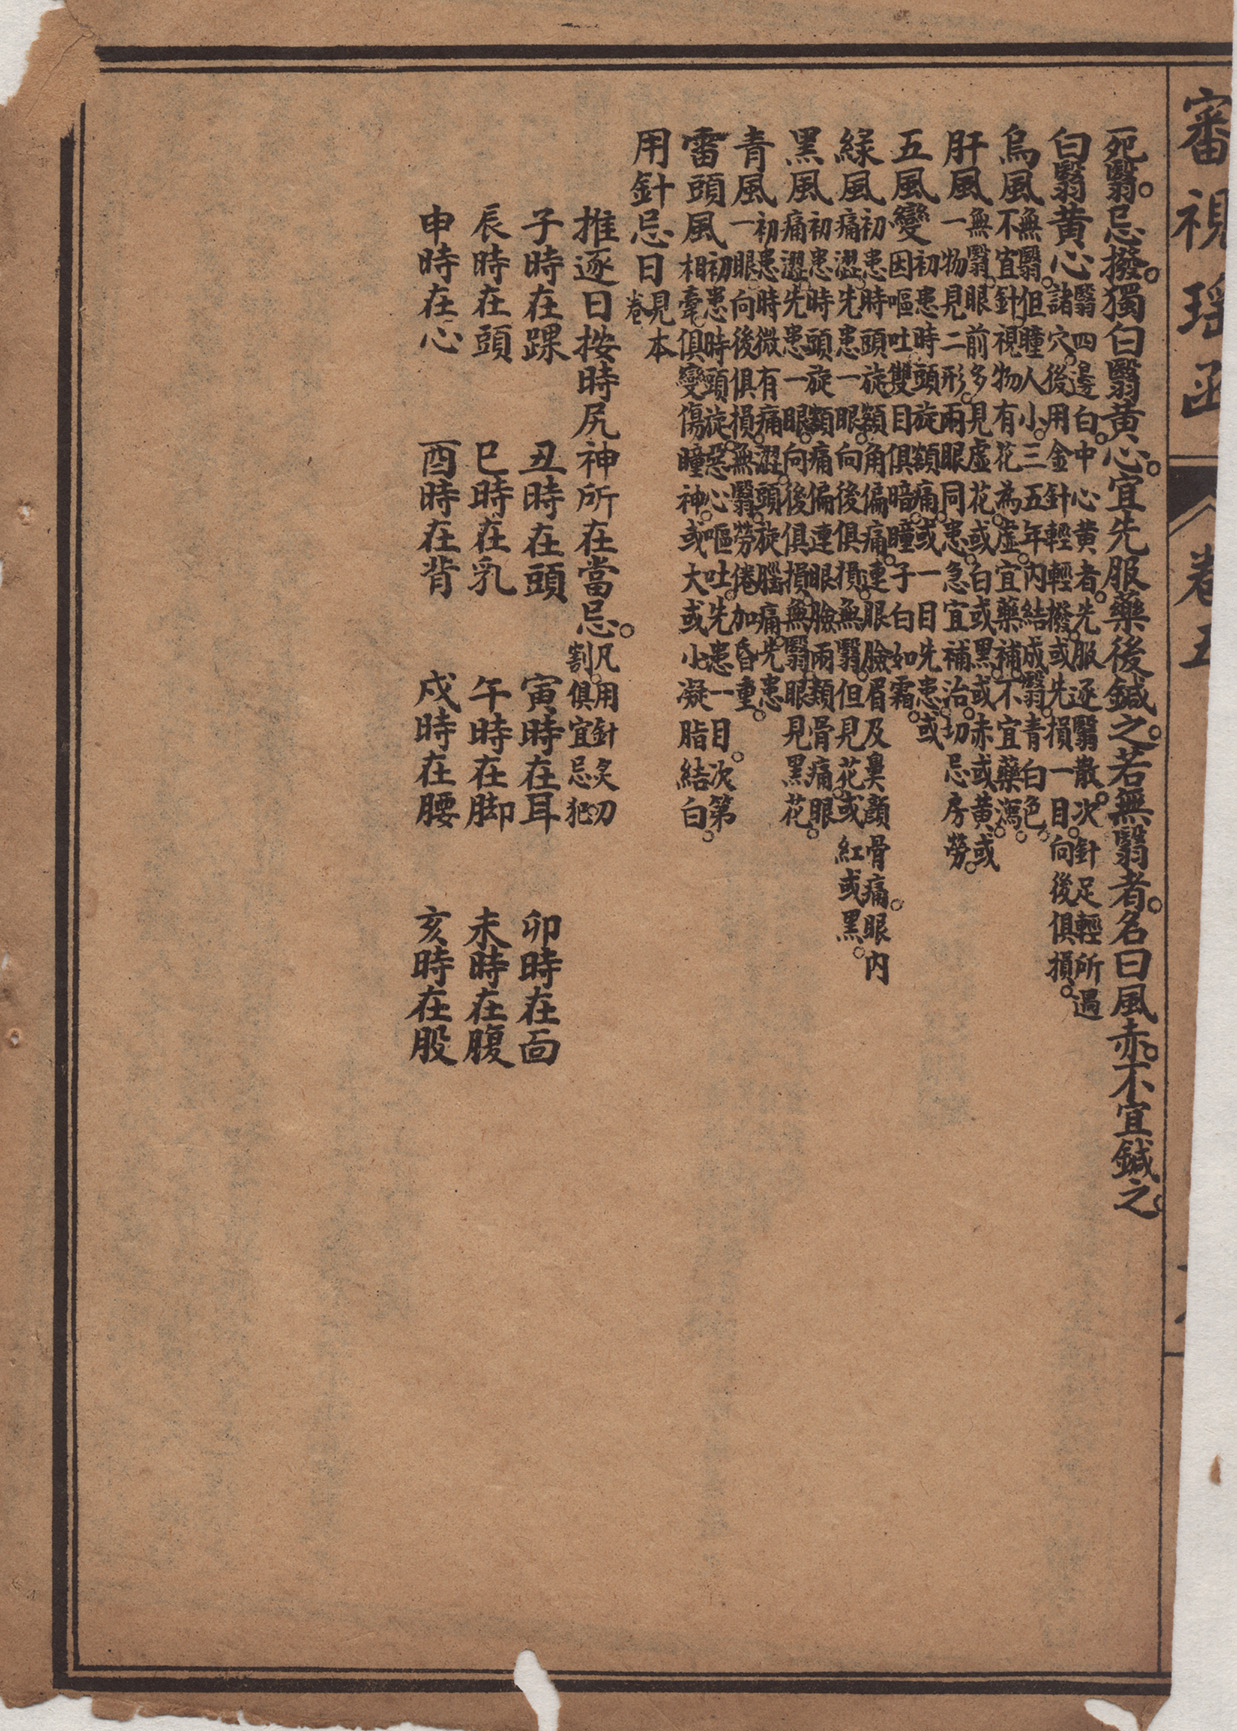 審視瑤函
卷五
死翳。忌撥。獨白翳黃心。宜先服藥後鍼之。若無翳者。名曰風赤。不宜鍼之。
白翳黃心 翳四邊白。中心黃者。先服逐翳散。次針足輕所過諸穴。後用金針輕輕撥。或先損一目。向後俱損。
烏風 無翳。但瞳人小。三五年內結成翳。青白色。不宜針。視物有花為虛。宜藥補。不宜藥瀉。
肝風 無翳。眼前多見虛花。或白或黑。或赤或黃。或一物見二形。兩眼同患。急宜補治。切忌房勞。
五風變 初患時頭旋額痛。或一目先患。或因嘔吐雙目俱暗。瞳子白如霜。
綠風 初患時頭旋額角偏痛。連眼臉眉及鼻顏骨痛。眼內痛澀。先患一眼。向後俱損。無翳。但見花或紅或黑。
黑風 初患時頭旋額痛。偏連眼臉。兩頰骨痛。眼痛澀。先患一眼。向後俱損。無翳。眼見黑花。
青風 初患時微有痛澀。頭旋腦痛。先患一眼。向後俱損。無翳。勞倦加昏重。
雷頭風 初患時頭旋惡心嘔吐。先患一目。次第相牽俱變。傷瞳神。或大或小。凝脂結白。
用針忌日 見本卷
推逐日按時尻神所在當忌。凡用針炙刀割。俱宜忌犯
子時在踝 丑時在頭 寅時在耳 卯時在面
辰時在頭 巳時在乳 午時在脚 未時在腹
申時在心 酉時在背 戍時在腰 亥時在股